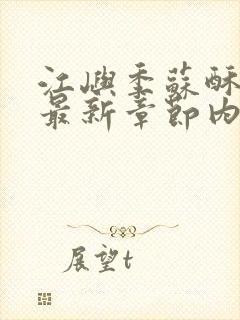 江嶼季蘇酥
最新章節內
展望t